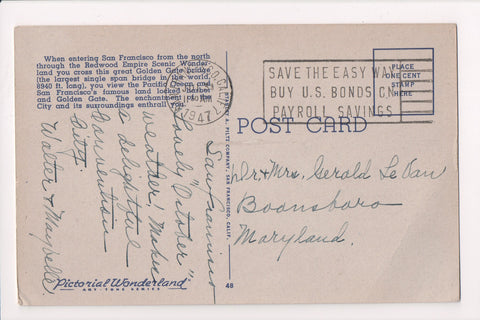 When entering San Francisco from the north
through the Redwood Empire Scenic Wonder-
land you cross this great Golden Gate bridge
(the largest single span bridge in the world,
8940 ft. long), you view the Pacific Ocean and
San Francisco's famous land locked harbor
and Golden Gate. The enchantment of the
City and its surroundings enthrall you.
CALIF.
1947
SAVE THE EASY WAY
BUY U.S. BONDS ON
PAYROLL SAVINGS
PLACE
ONE CENT
STAMP
HERE
POST CARD
PILTZ COMPANY, SAN FRANCISCO, CALIF.
San Francisco
"Lovely October"
weather! Makes
a delightful
Convention
City.
Walter & Maybelle
Dr & Mrs. Gerald Le Van
Boonsboro
Maryland.
Pictorial Wonderland
ART-TONE SERIES
48